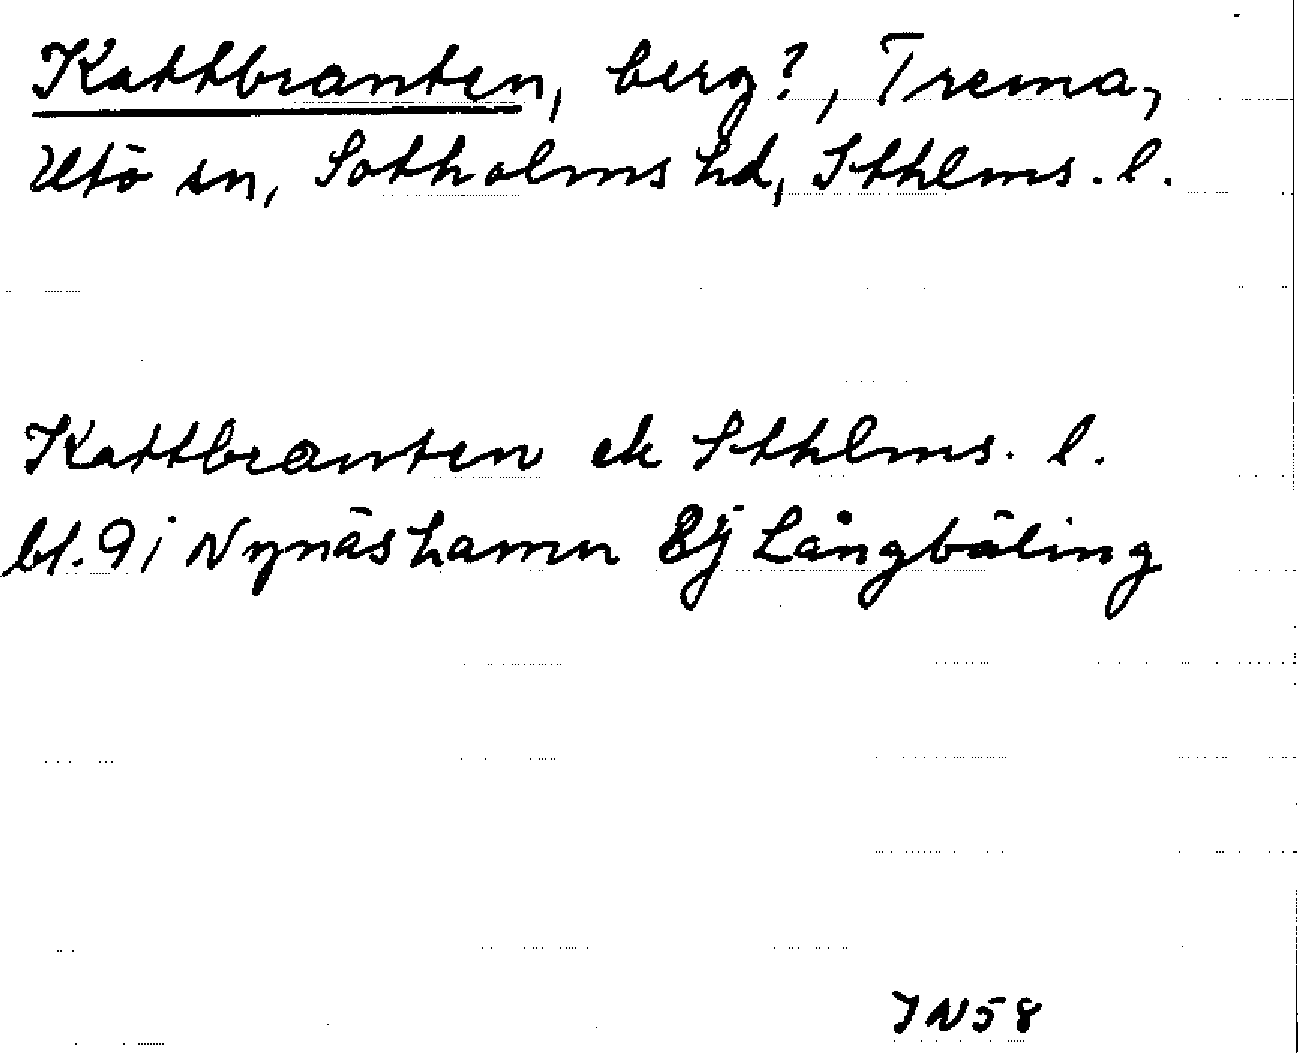 Kattbranten, berg?, Trema,
Utö sn, Sotholms hd, Sthlms. l.
Kattbranten ek Sthlms. l.
bl. 9 i Nynäshamn Ej Långbäling
JN58